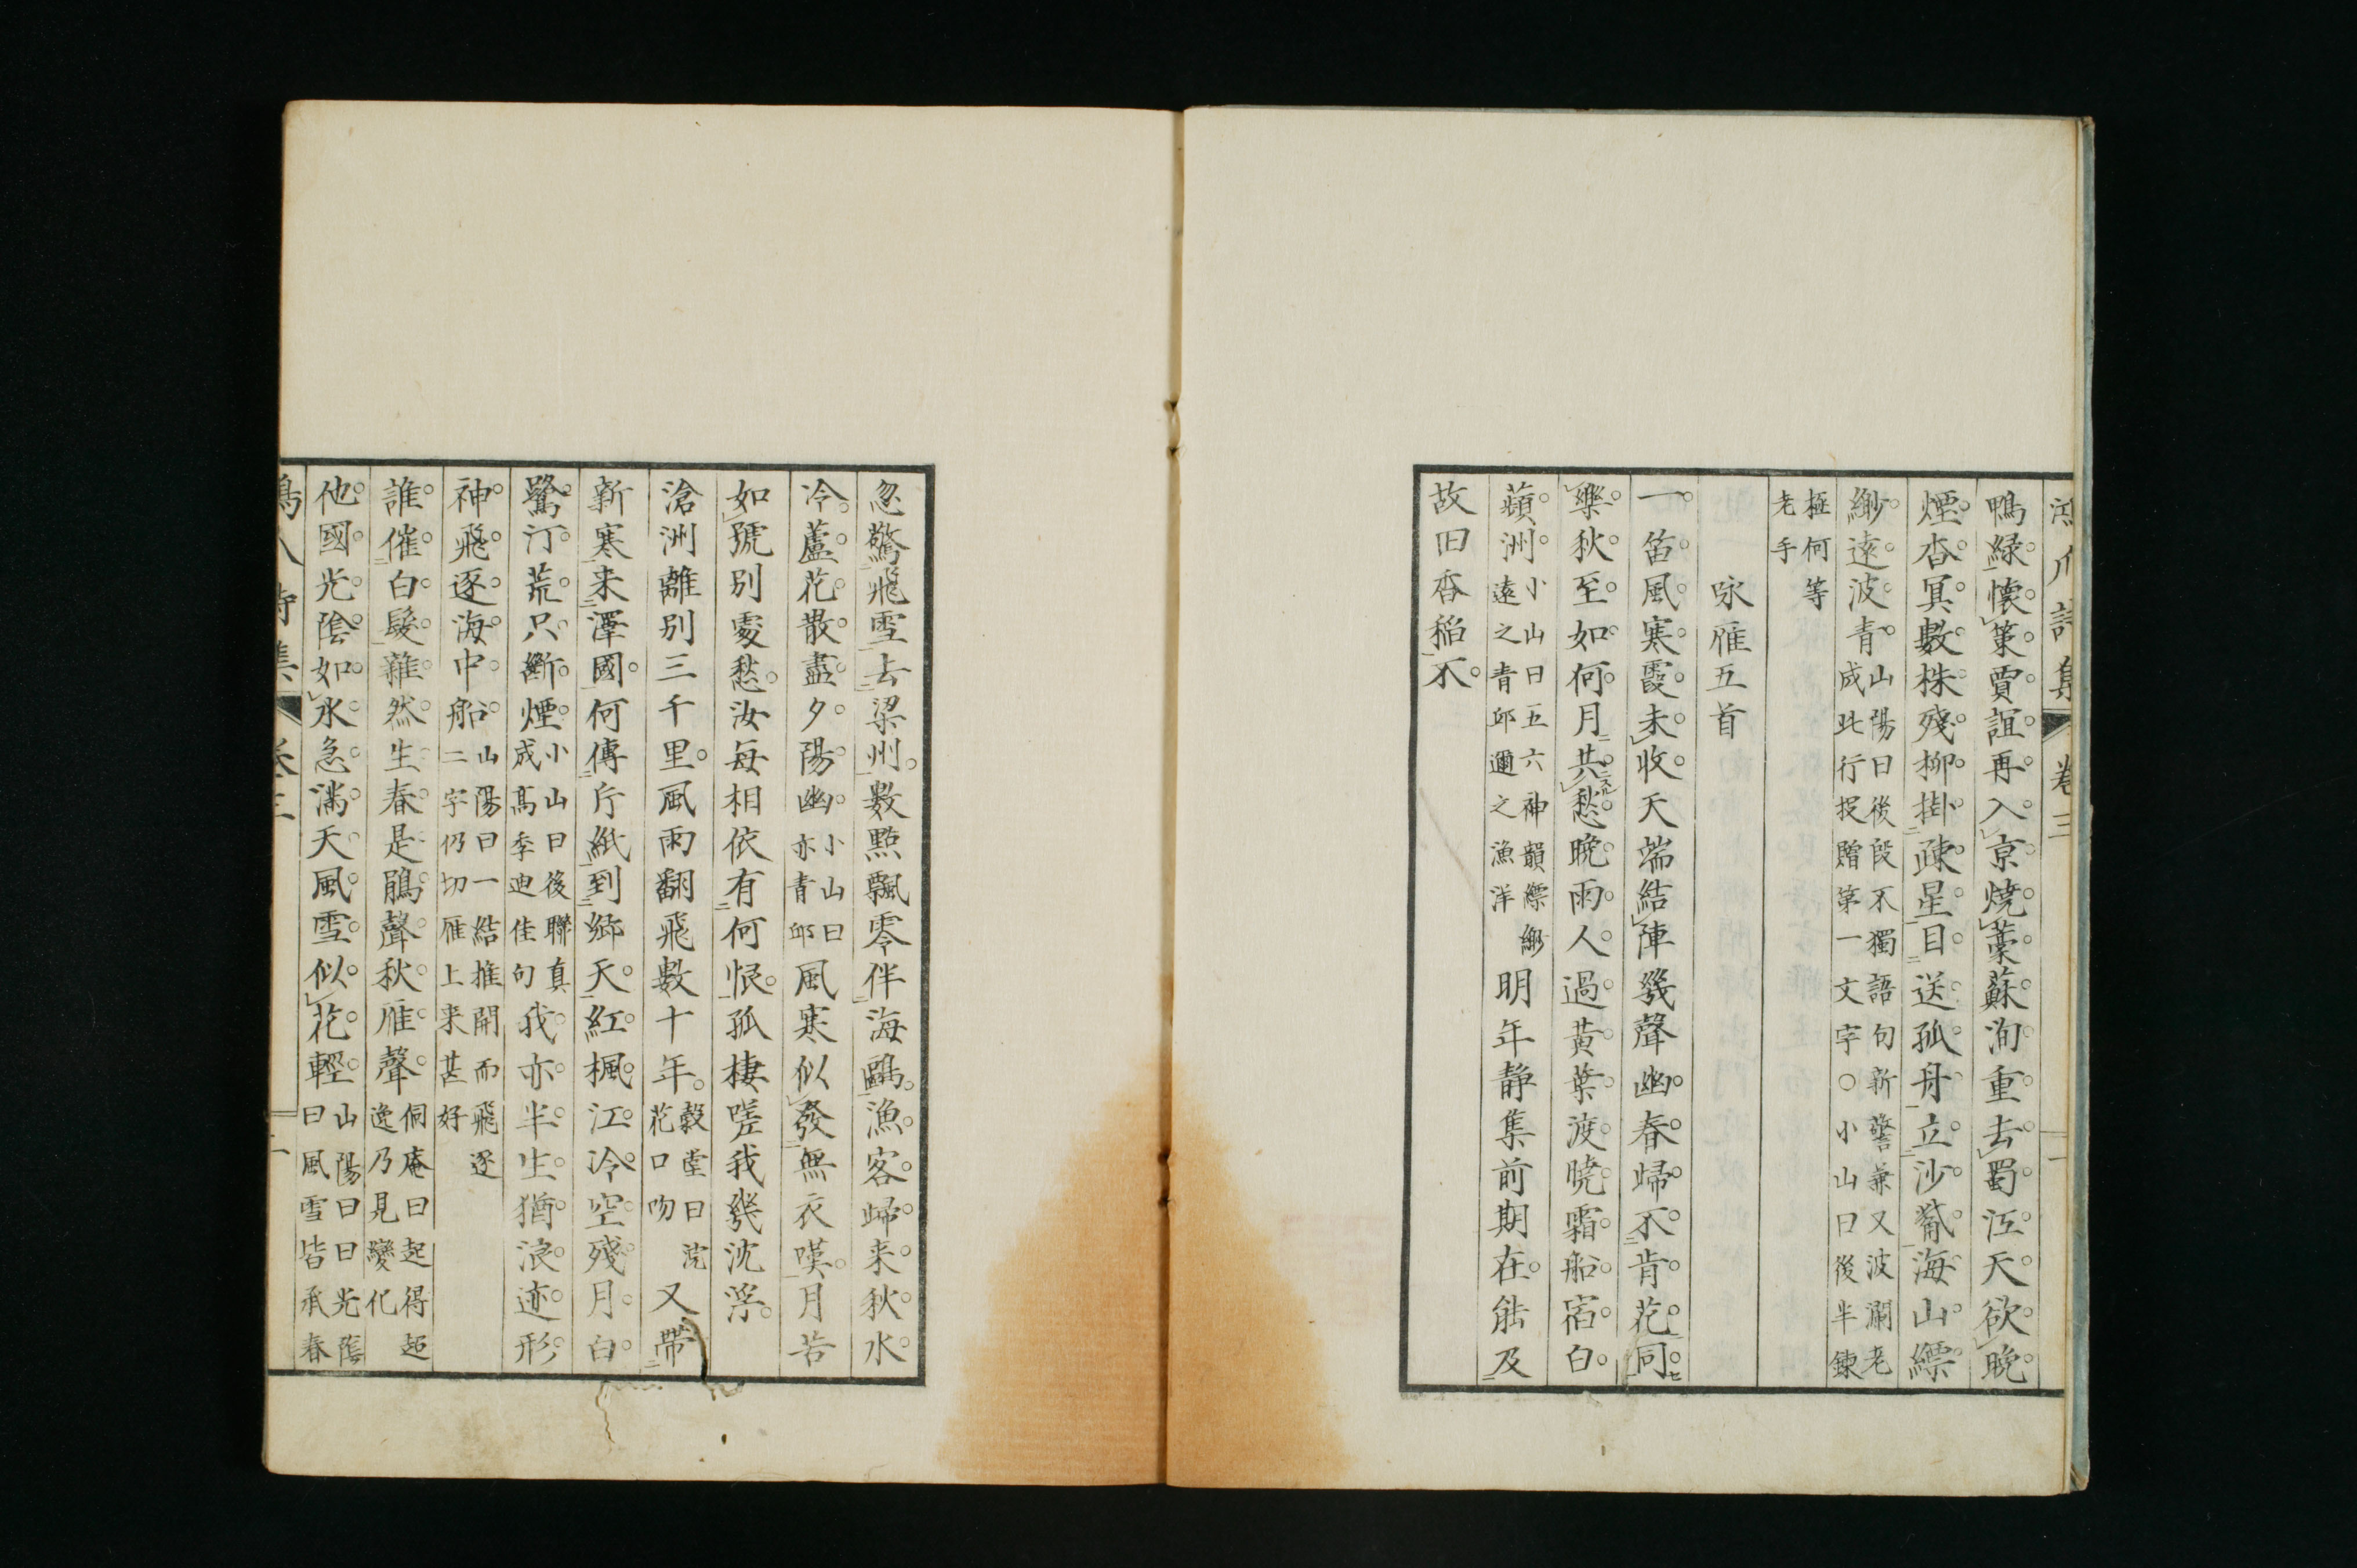 鴻爪詩集 卷三 一
鴨緑懷策賈誼再入京燒藁蘇洵重去蜀江天欲晚
煙杳冥數株殘柳掛疎星目送孤舟立沙觜海山縹
緲遠波青山陽曰後段不獨語句新警兼又波瀾老成此行投贈第一文字○小山曰後半鍊
極何等老手
咏雁五首
一笛風寒霞未收天端結陣幾聲幽春歸不肯花同
樂秋至如何月共愁晩雨人過黃葉渡曉霜船宿白
蘋洲小山曰五六神韻縹緲遠之青邱邇之漁洋明年靜集前期在能及
故田香稻不
忽驚飛雪去梁州數點飄零伴海鷗漁客歸来秋水
冷蘆花散盡夕陽幽小山曰亦青邱風寒似發無衣嘆月苦
如號別處愁汝每相依有何恨孤棲嗟我幾沈浮
滄洲離別三千里風雨翻飛數十年穀堂曰浣花口吻又帶
新寒来澤國何傳片紙到鄉天紅楓江冷空殘月白
鷺汀荒只斷煙小山曰後聯真成高季迪佳句我亦半生猶浪迹形
神飛逐海中船山陽曰一結推開而飛逐二字仍切雁上来甚好
誰催白髮雜然生春是鵑聲秋雁聲侗庵曰起得超逸乃見變化
他國光陰如水急滿天風雪似花輕山陽曰光陰曰風雪皆承春